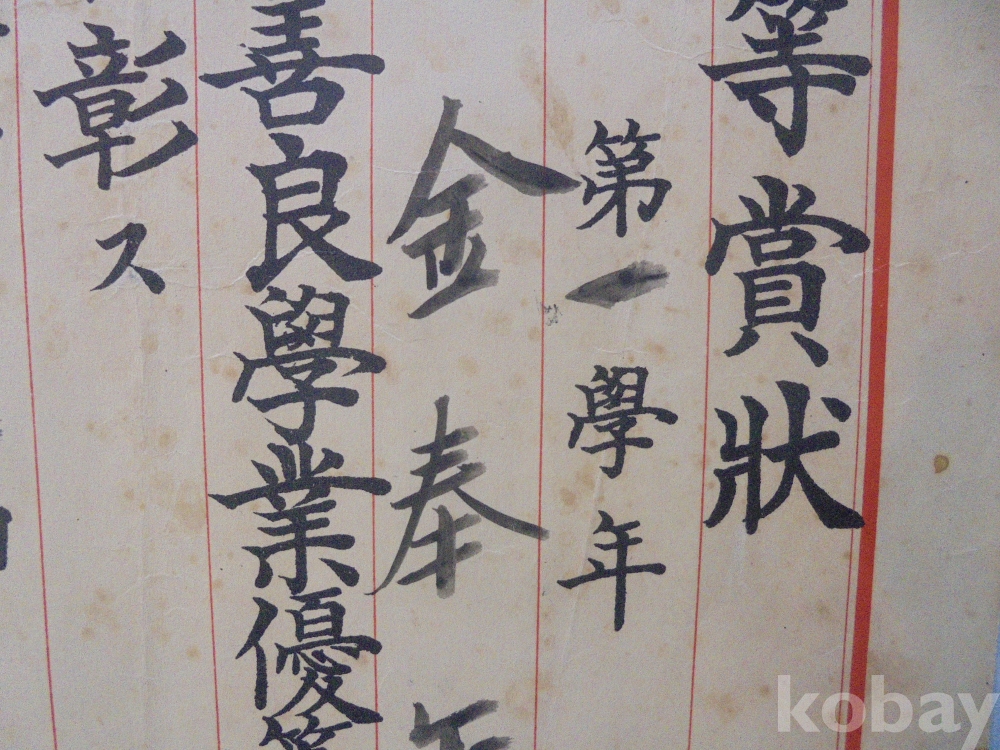 等賞狀
第一學年
金奉
善良學業優等
彰ス
kobay